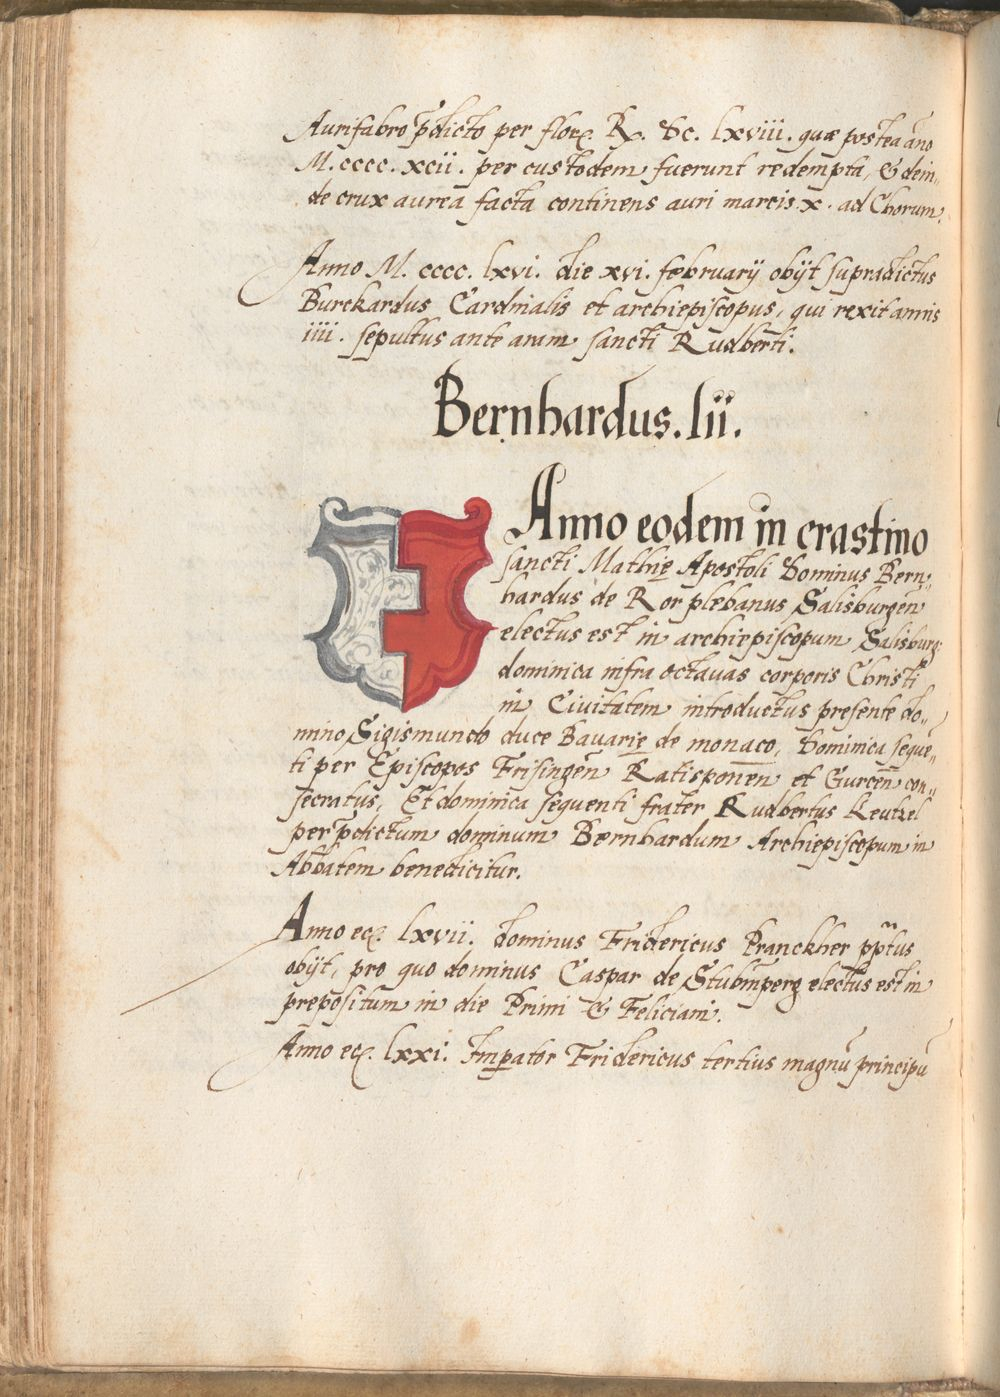 Aurifabro p̄dicto per flor. R. Vc. lxviii. quæ postea año
M. cccc. xcii. per custodem fuerunt redempta, & dein„
de crux aurea facta continens auri marcis x. ad Chorum.
Anno M. cccc. lxvi. die xvi. februarij obijt supradictus
Burckardus Cardinalis et archiepiscopus, qui rexit annis
iiii. sepultus ante aram sancti Rudberti.
Bernhardus. lii.
Anno eodem in crastino
sancti Mathię Apostoli Dominus Bern„
hardus de Ror plebanus Salisburgeñ
electus est in archiepiscopum Salisburg:
dominica infra octavas corporis Christi
in Civitatem introductus presente do„
mino Sigismundo duce Bavarię de monaco, Dominica sequē„
ti per Episcopos Frisingeñ Ratisponeñ et Gurceñ con„
secratus, Et dominica sequenti frater Rudbertus Keutzel
per p̄dictum dominum Bernhardum Archiepiscopum in
Abbatem benedicitur.
Anno ec. lxvii. dominus Fridericus Pranckher pp̄tus
obijt, pro quo dominus Caspar de Stubmperg electus est in
prepositum in die Primi & Feliciani.
Anno ec. lxxi. Imperator Fridericus tertius magnū principū